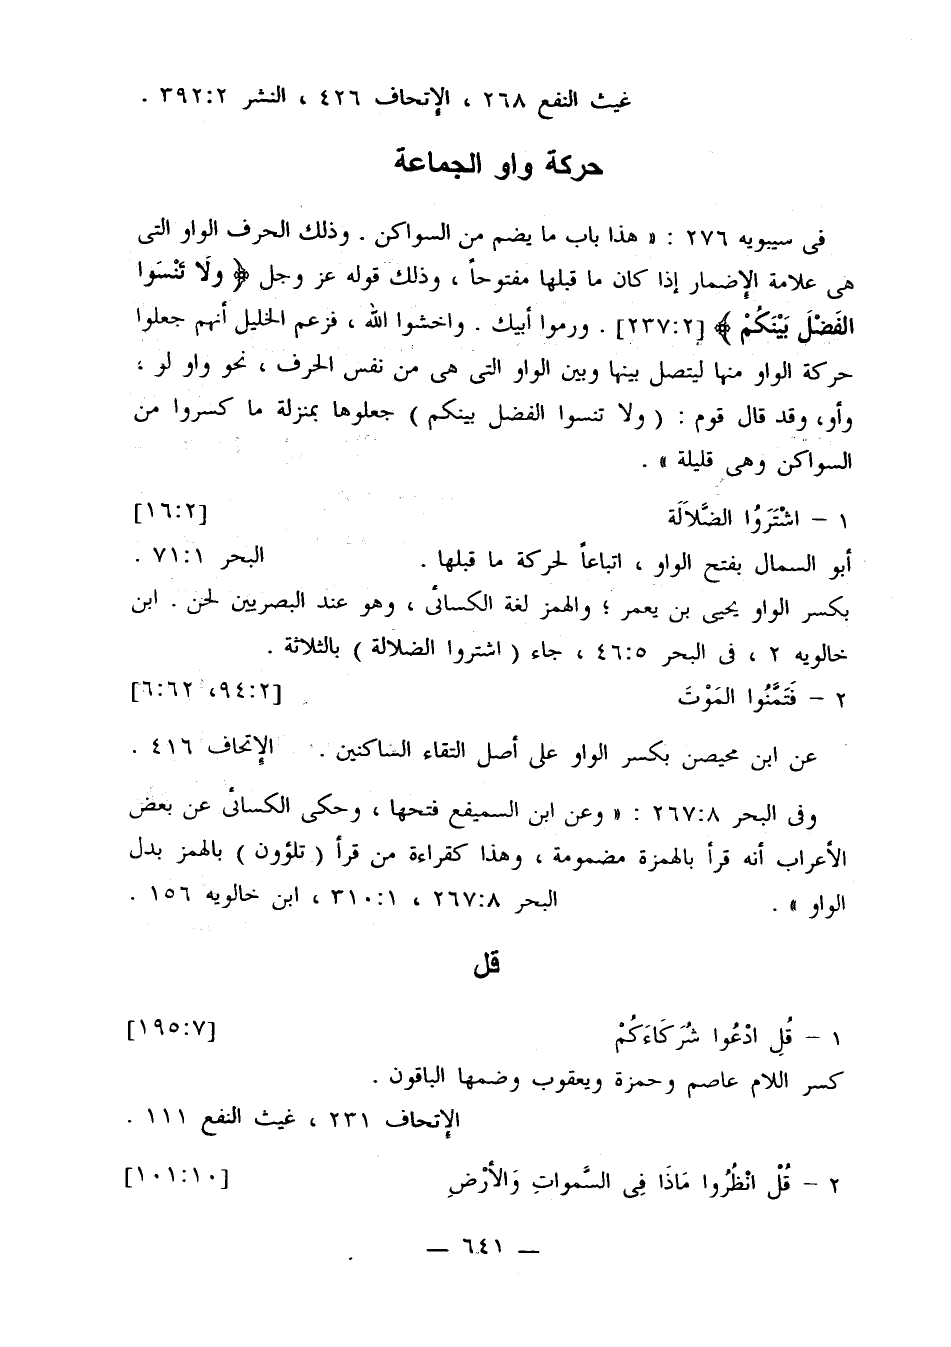 غيث النفع ٢٦٨ ، الإتحاف ٤٢٦ ، النشر ٣٩٢:٢ .
حركة واو الجماعة
فى سيبويه ٢٧٦ : « هذا باب ما يضم من السواكن . وذلك الحرف الواو التى
هى علامة الإضمار إذا كان ما قبلها مفتوحاً ، وذلك قوله عز وجل ﴿ ولَا تَنْسَوا
الفَضْلَ بَيْنَكُمْ ﴾ [٢٣٧:٢] . ورموا أبيك . واخشوا الله ، فزعم الخليل أنهم جعلوا
حركة الواو منها ليتصل بينها وبين الواو التى هى من نفس الحرف ، نحو واو لو ،
وأو، وقد قال قوم : ( ولا تنسوا الفضل بينكم ) جعلوها بمنزلة ما كسروا من
السواكن وهى قليلة » .
١ – اشْتَرَوُا الضَّلاَلَة [١٦:٢]
أبو السمال بفتح الواو ، اتباعاً لحركة ما قبلها . البحر ٧١:١ .
بكسر الواو يحيى بن يعمر ؛ والهمز لغة الكسائى ، وهو عند البصريين لحن . ابن
خالويه ٢ ، فى البحر ٤٦:٥ ، جاء ( اشتروا الضلالة ) بالثلاثة .
٢ – فَتَمَّنُوا المَوْتَ [٩٤:٢، ٦:٦٢]
عن ابن محيصن بكسر الواو على أصل التقاء الساكنين . الإتحاف ٤١٦ .
وفى البحر ٢٦٧:٨ : « وعن ابن السميفع فتحها ، وحكى الكسائى عن بعض
الأعراب أنه قرأ بالهمزة مضمومة ، وهذا كقراءة من قرأ ( تلؤون ) بالهمز بدل
الواو » . البحر ٢٦٧:٨ ، ٣١٠:١ ، ابن خالويه ١٥٦ .
قل
١ – قُلِ ادْعُوا شُرَكَاءَكُمْ [١٩٥:٧]
كسر اللام عاصم وحمزة ويعقوب وضمها الباقون .
الإتحاف ٢٣١ ، غيث النفع ١١١ .
٢ – قُلْ انْظُرُوا مَاذَا فِى السَّموات وَالأَرْضِ [١٠١:١٠]
— ٦٤١ —